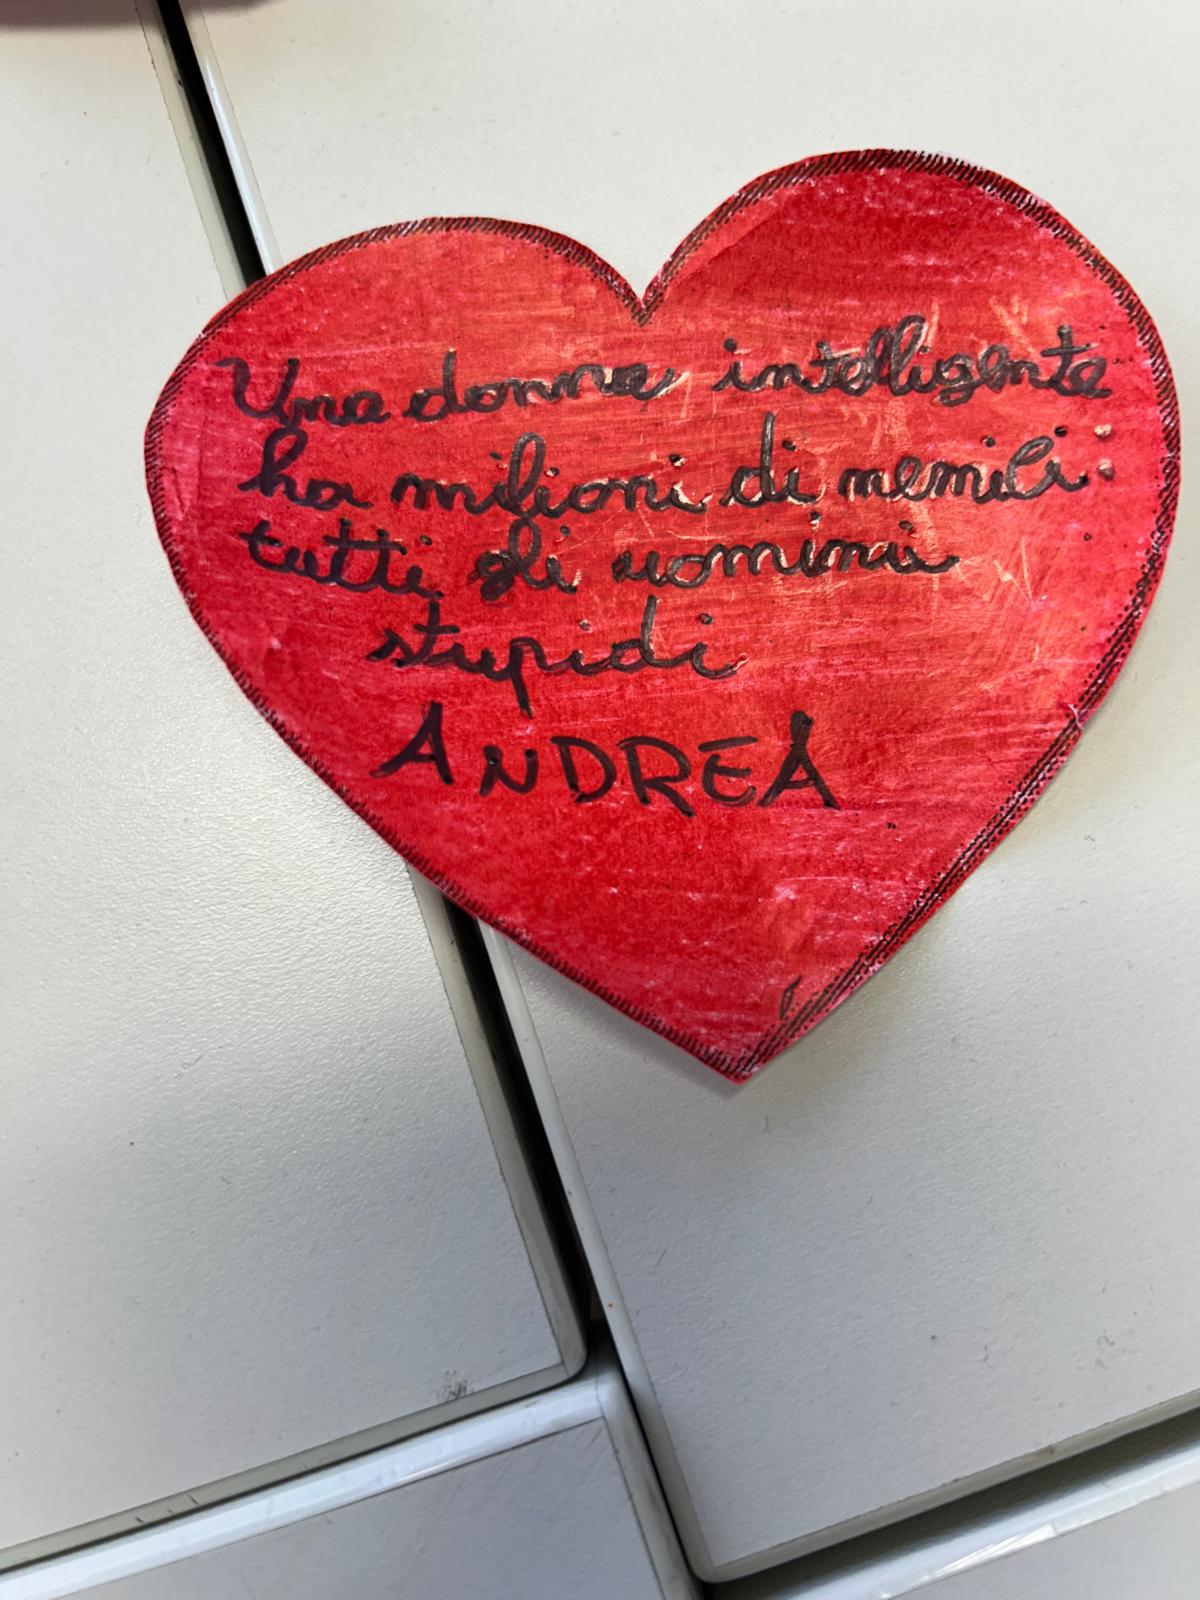 Una donna intelligente
ha milioni di nemici:
tutti gli uomini
stupidi
ANDREA